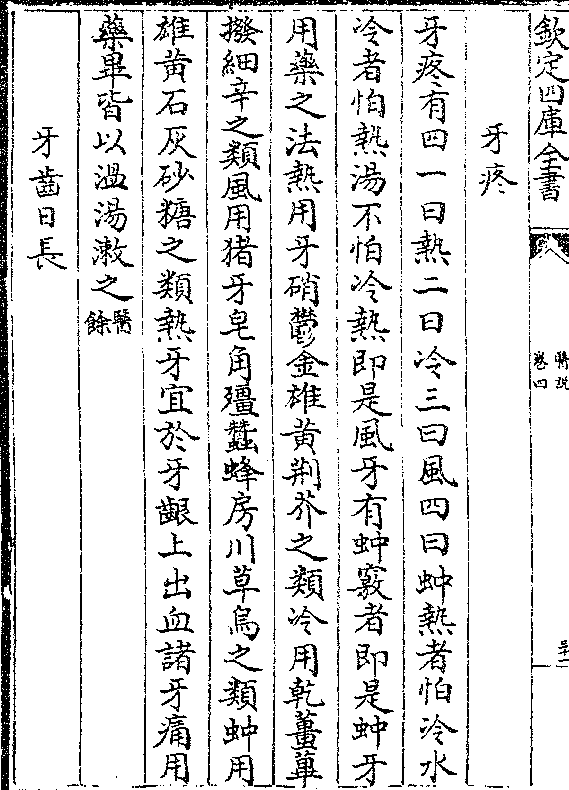 欽定四庫全書
醫説
卷四
牙疼
牙疼有四一曰熱二曰冷三曰風四曰蚛熱者怕冷水
冷者怕熱湯不怕冷熱即是風牙有蚛竅者即是蚛牙
用藥之法熱用牙硝鬱金雄黄荆芥之類冷用乾薑蓽
撥細辛之類風用猪牙皂角殭蠶蜂房川草烏之類蚛用
雄黄石灰砂糖之類熱牙宜於牙齦上出血諸牙痛用
藥畢皆以温湯漱之醫餘
牙齒日長